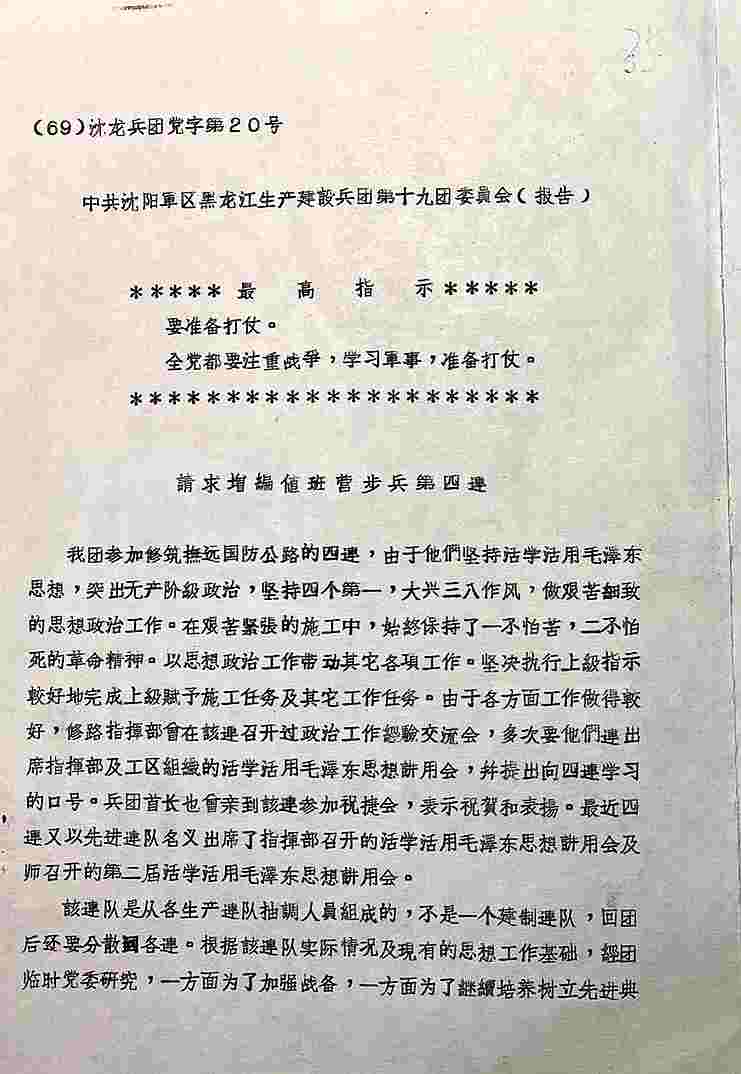 (69)沈龙兵团党字第20号
中共沈阳軍区黑龙江生产建設兵团第十九团委員会(报告)
*****最 高 指 示*****
要准备打仗。
全党都要注重战爭,学习軍事,准备打仗。
**********************
請求增編值班营步兵第四連
我团参加修筑撫远国防公路的四連,由于他們坚持活学活用毛澤东
思想,突出无产阶級政治,坚持四个第一,大兴三八作风,做艰苦細致
的思想政治工作。在艰苦緊張的施工中,始終保持了一不怕苦,二不怕
死的革命精神。以思想政治工作带动其它各項工作。坚决执行上級指示
較好地完成上級賦予施工任务及其它工作任务。由于各方面工作做得較
好,修路指揮部曾在該連召开过政治工作經驗交流会,多次要他們連出
席指揮部及工区組織的活学活用毛澤东思想講用会,幷提出向四連学习
的口号。兵团首长也曾亲到該連参加祝捷会,表示祝賀和表揚。最近四
連又以先进連队名义出席了指揮部召开的活学活用毛澤东思想講用会及
师召开的第二届活学活用毛澤东思想講用会。
該連队是从各生产連队抽調人員組成的,不是一个建制連队,回团
后还要分散回各連。根据該連队实际情况及現有的思想工作基础,經团
临时党委研究,一方面为了加强战备,一方面为了継續培养树立先进典